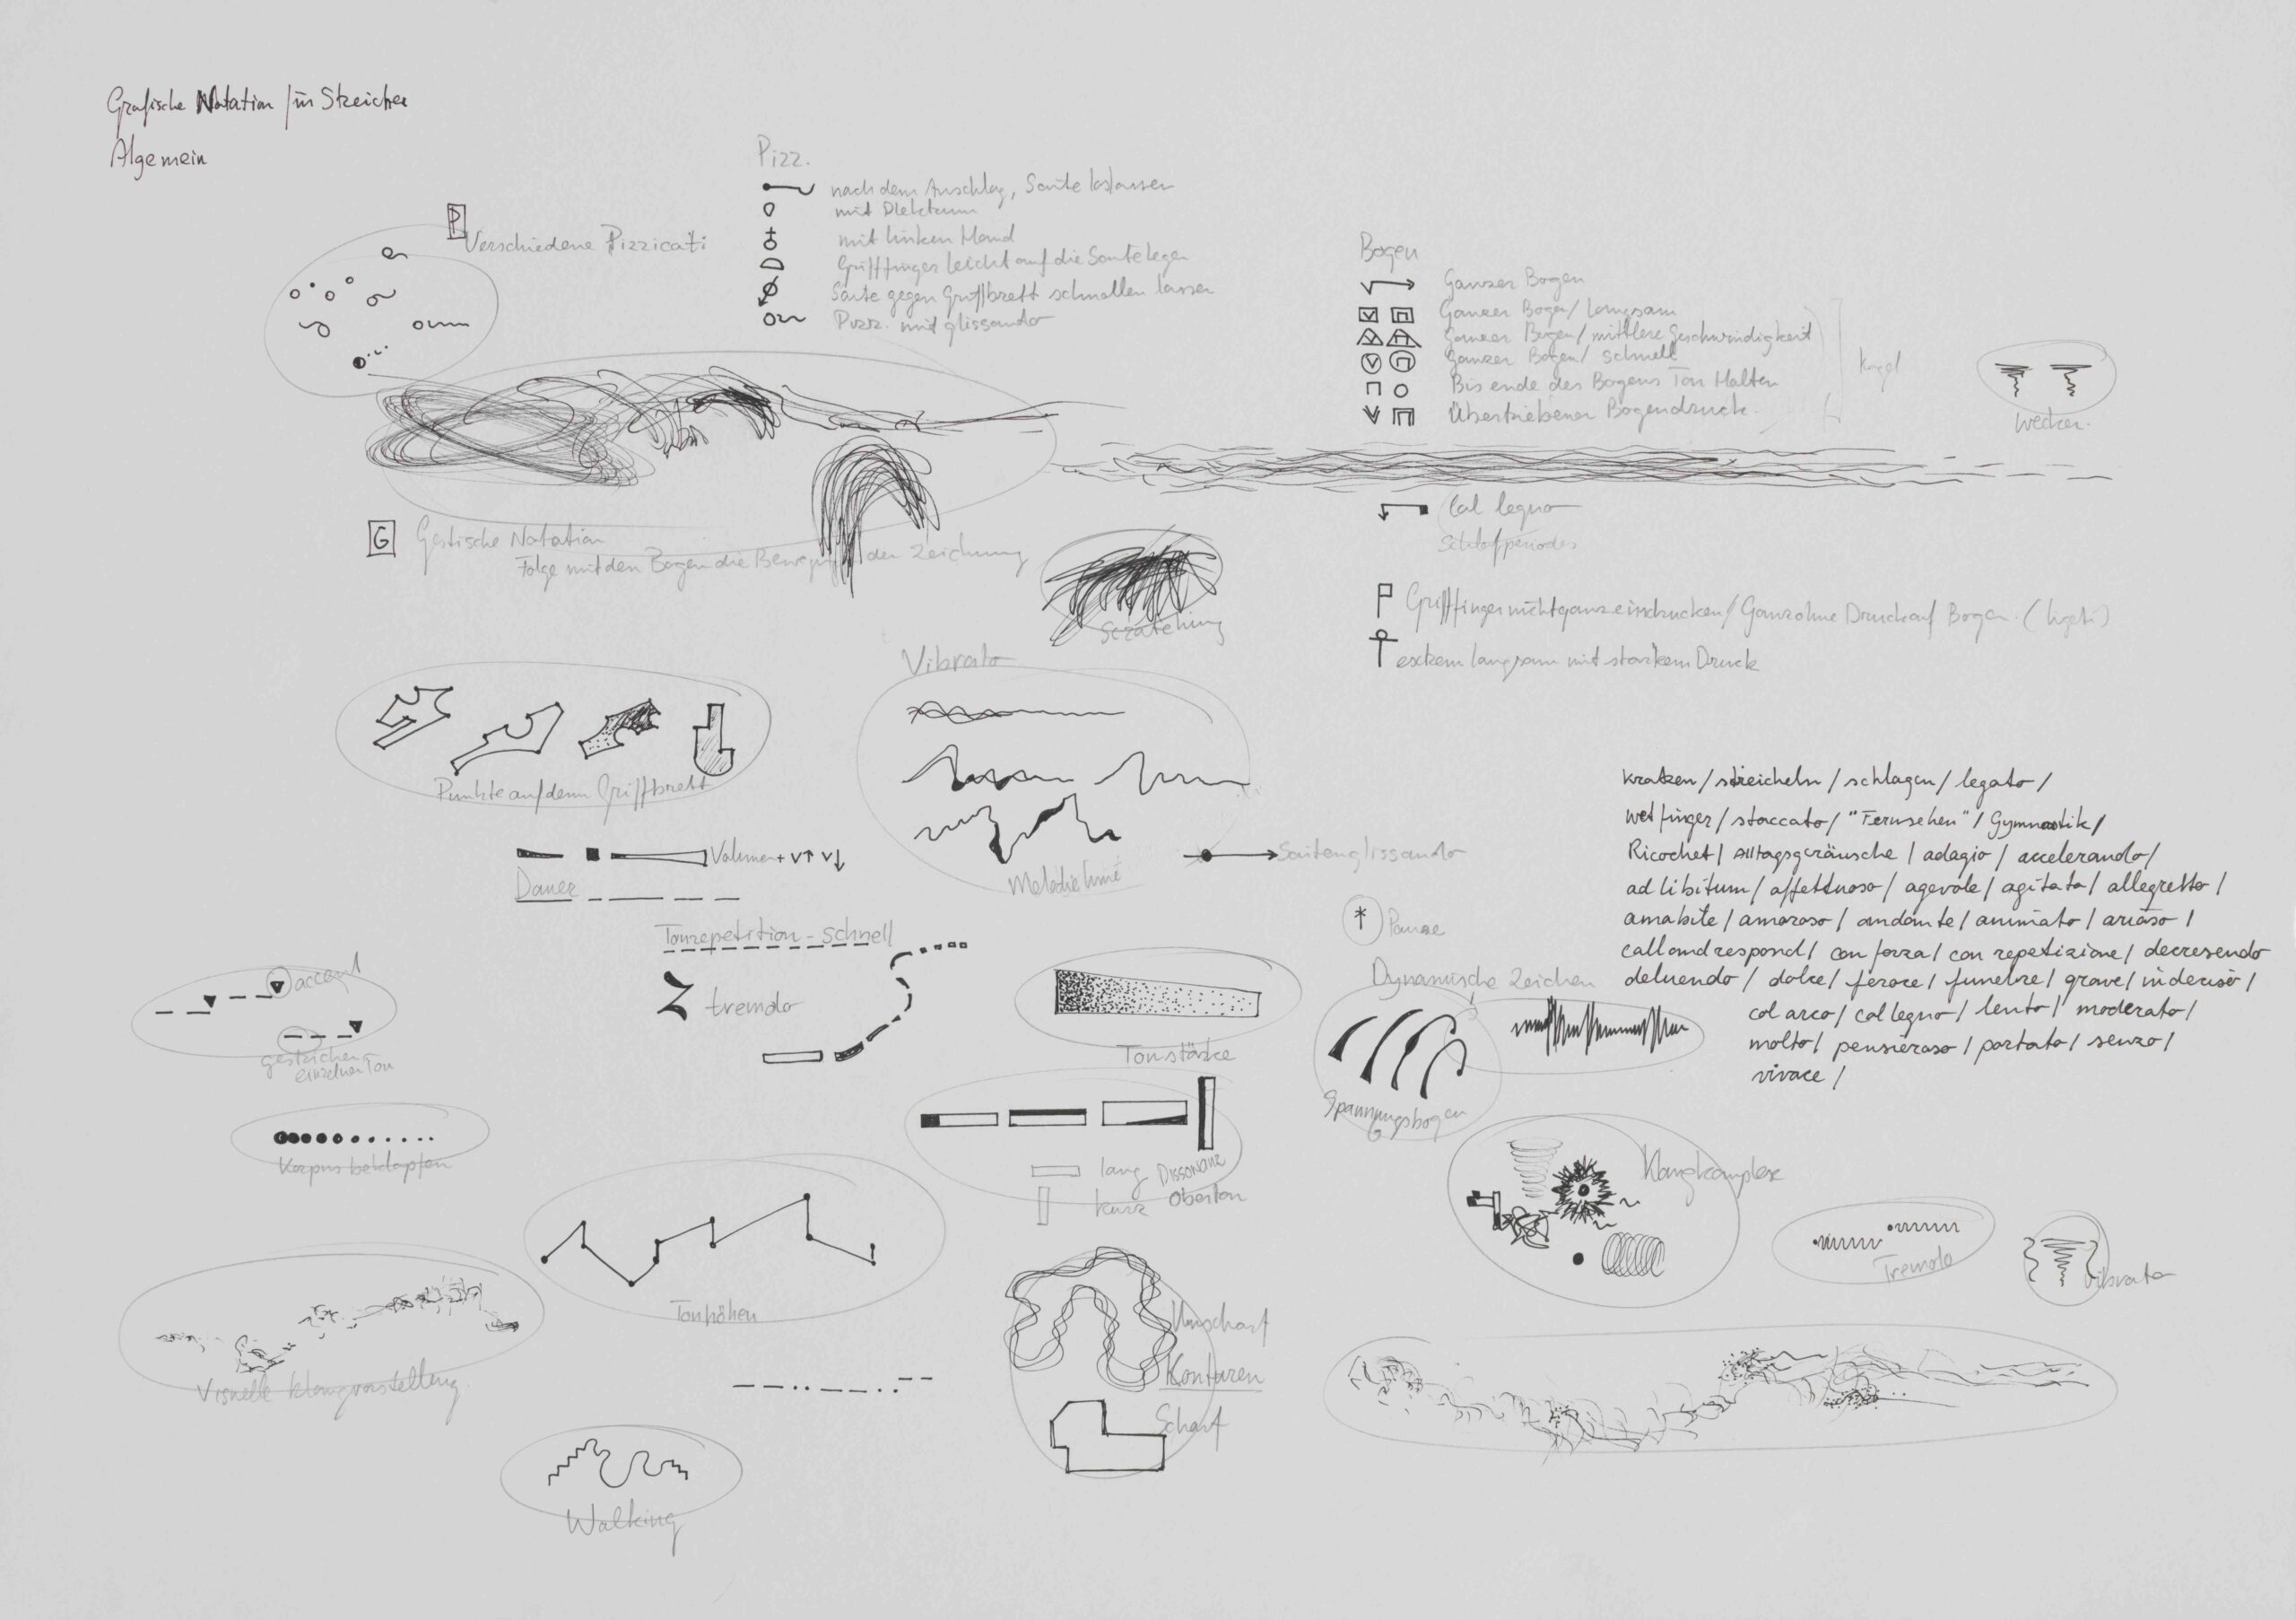 Grafische Notation für Streicher
Algemein
P
Verschiedene Pizzicati
Pizz.
nach dem Anschlag, Saite loslassen
mit Plektrum
mit linken Hand
Griffinger leicht auf die Saite legen
Saite gegen Griffbrett schnallen lassen
Pizz. mit glissando
Bogen
Ganzer Bogen
Ganzer Bogen / langsam
Ganzer Bogen / mittlere Geschwindigkeit
Ganzer Bogen / schnell
Bis ende des Bogens Ton Halten
Übertriebener Bogendruck.
Kagel
Wecker.
G
Gestische Notation
Folge mit den Bogen die Bewegung der Zeichnung
Scratching
Col legno
Schlafperiodes
Griffinger nicht ganz eindrucken / Ganz ohne Druck auf Bogen. (Ligeti)
extrem langsam mit starkem Druck
Punkte auf dem Griffbrett
Vibrato
Melodielinie
Volumen + V↑ V↓
Dauer
Saitenglissando
Tonrepetition - Schnell
tremolo
accent
gestrichen
einzelner Ton
Korpus beklopfen
Tonstärke
lang
kurz
Dissonanz
Oberton
* Pause
Dynamische Zeichen
Spannungsbogen
kratzen / streicheln / schlagen / legato /
wet finger / staccato / "Fernsehen" / Gymnastik /
Ricochet / Alltagsgeräusche / adagio / accelerando /
ad libitum / affettuoso / agevole / agitato / allegretto /
amabile / amoroso / andante / animato / arioso /
call and respond / con forza / con repetizione / decresendo
deluendo / dolce / feroce / funebre / grave / indeciso /
col arco / col legno / lento / moderato /
molto / pensieroso / portato / senzo /
vivace /
Klangkomplexe
Tremolo
Vibrato
Visuelle Klangvorstellung
Tonhöhen
Unscharf
Konturen
Scharf
Walking